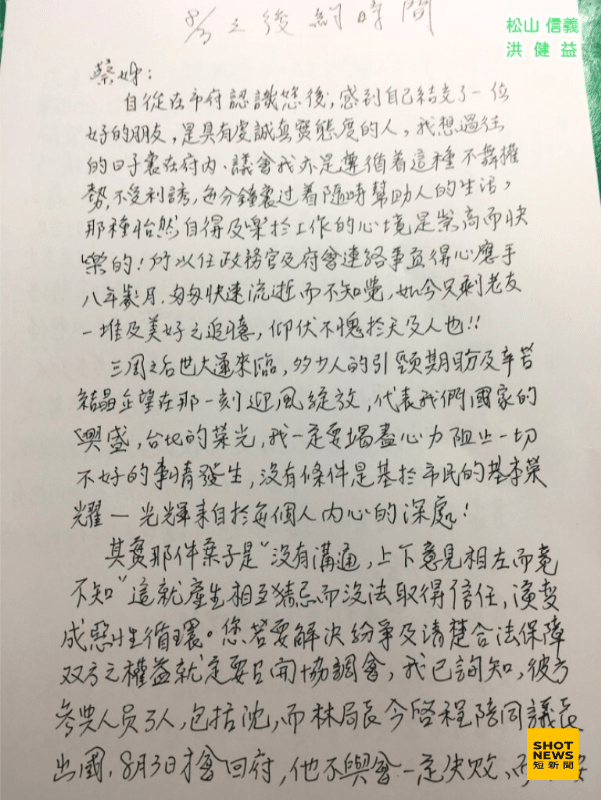 8/3之後約時間
松山 信義
洪健益
蔡姊：
自從在市府認識您後，感到自己結交了一位
好的朋友，是具有虔誠真實態度的人，我想過往
的日子裏在府內、議會我亦是遵循着這種不輕權
勢，不受利誘，每分鐘裏过着隨時幫助人的生活，
那種怡然自得及樂於工作的心境是崇高而快
樂的！所以任政務官及府會連絡事宜得心應手
八年歲月，匆匆快速流逝而不知覺，如今只剩老友
一堆及美好之追憶，仰伏不愧於天及人也!!
三周之后世大運來臨，多少人的引頸期盼及辛苦
結晶企望在那一刻迎風綻放，代表我們國家的
興盛，台北的榮光，我一定要竭盡心力阻止一切
不好的事情發生，沒有條件是基於市民的基本榮
耀一光輝來自於每個人內心的深處！
其實那件案子是"沒有溝通，上下意見相左而竟
不知"這就產生相互猜忌而沒法取得信任，演变
成惡性循環。您若要解決紛爭及清楚合法保障
双方之權益就定要召開協調會，我已詢知，彼方
參與人员3人，包括沈，而林局長今啓程陪同議長
出國，8月3日才會回府，他不與會一定失败、而
SHOT
NEWS
短新聞